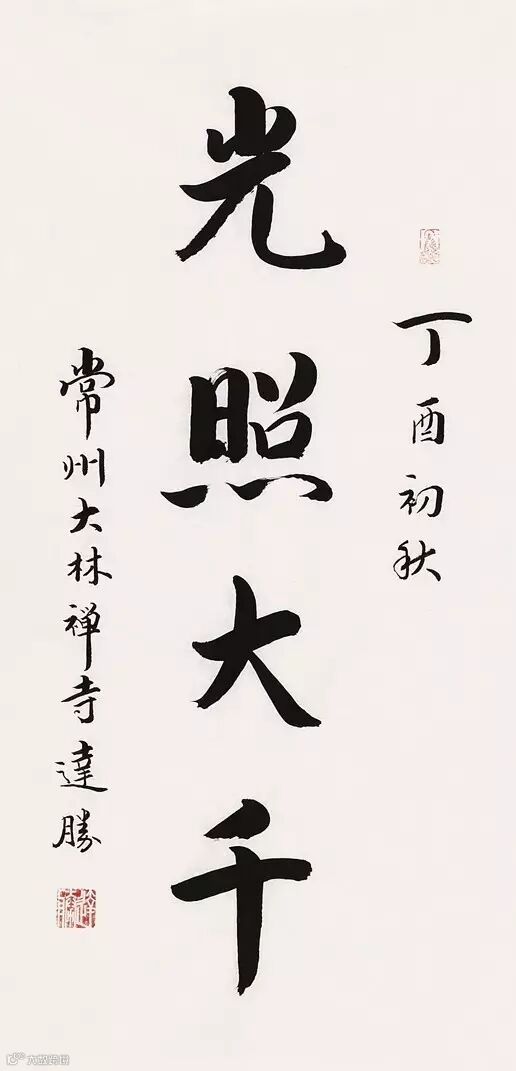 丁酉初秋
光照大千
常州大林禅寺達勝